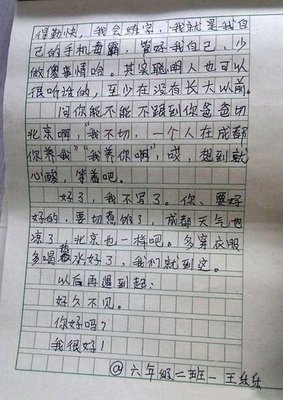 得勤快，我会练字，我就是我自
己的手机毒霸，管好我自己、少
做傻事情哈。其实聪明人也可以
很听话的，至少在没有长大以前。
问你能不能不跟到你爸爸切
北京啊，“我不切，一个人在成都
你养我”“我养你啊”，哎，想到就
心酸，等着吧。
好了，我不写了。你、要好
好的，要切煮饭了，成都天气也
凉了，北京也一样吧。多穿衣服
多喝热水好了，我们就到这。
以后再遇到起：
好久不见。
你好吗？
我很好！
@六年级二班—王乐乐